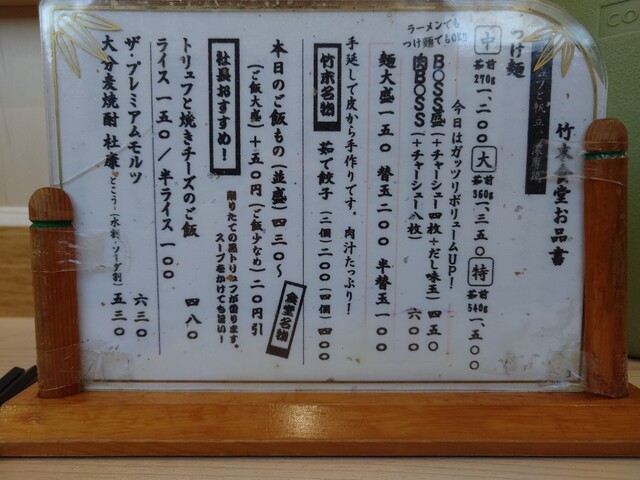 竹末食堂お品書
つけ麺
中 茶前270g 一、二〇〇 大 茶前360g 一、三五〇 特 茶前540g 一、五〇〇
ラーメンでも
つけ麺でもOK!!
今日はガッツリボリュームUP!
BOSS盛(+チャーシュー四枚+だし味玉) 四五〇
肉BOSS(+チャーシュー八枚) 六〇〇
麺大盛 一五〇 替玉 二〇〇 半替玉 一〇〇
手延しで皮から手作りです。肉汁たっぷり!
竹末名物 茹で餃子(二個)二〇〇(四個)四〇〇
食堂名物
本日のご飯もの(並盛)四三〇〜
(ご飯大盛)+五〇円(ご飯少なめ)二〇円引
社長おすすめ!
削りたての黒トリュフが香ります。
スープをかけても旨い!
トリュフと焼きチーズのご飯 四八〇
ライス 一五〇/半ライス 一〇〇
ザ・プレミアムモルツ 六三〇
大分麦焼酎 杜康 とこう(水割・ソーダ割) 五三〇